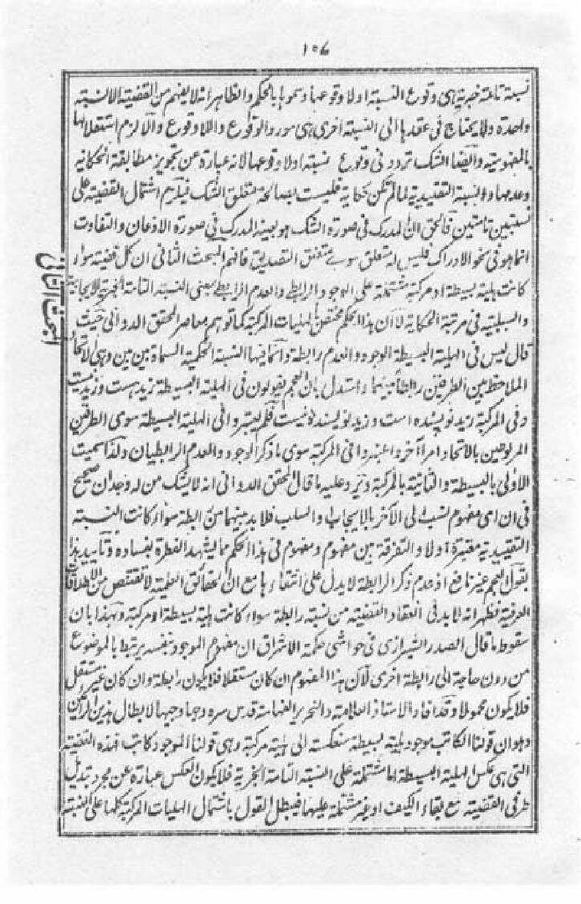 ١٥٦
نسبة تامة خبرية هى وقوع النسبة اولا وقوعها ويسموها بالحكم والظاهر انه لا يفهم من القضية الا نسبة
واحدة ولا يحتاج فى عقدها الى النسبة اخرى هى مورد الوقوع واللا وقوع والا لزم استقلالها
بالمفهومية وايضا الشك تردد فى وقوع نسبة اولا وقوعها لانه عبارة عن تجويز مطابقة الحكاية
وعدمها والنسبة التقييدية لما لم تكن حكاية فليست بصالحة لتعلق الشك فيلزم اشتمال القضية على
نسبتين تامتين فالحق ان المدرك فى صورة الشك هو بعينه المدرك فى صورة الاذعان والتفاوت
انما هو فى نحو الادراك فليس له متعلق سوى متعلق التصديق فافهم المبحث الثانى ان كل قضية سواء
كانت هلية بسيطة او مركبة مشتملة على الوجود الرابط والعدم الرابط بمعنى النسبة التامة الخبرية الايجابية
والسلبية فى مرتبة الحكاية لا ان هذا الحكم مختص بالهليات المركبة كما توهم معاصر المحقق الدوانى حيث
المبحث الثانى
قال ليس فى الهلية البسيطة الوجود والعدم رابطة وانما فيها النسبة الحكمية المسماة بين بين وهى الاتحاد
الملاحظ بين الطرفين رابطا بينهما واستدل بان العجم يقولون فى الهلية البسيطة زيد هست وزيد نيست
وفى المركبة زيد نويسنده است وزيد نويسنده نيست فلم يعتبروا فى الهلية البسيطة سوى الطرفين
المربوطين بالاتحاد امرا آخر واعتبروا فى المركبة سوى ما ذكر الوجود والعدم الرابطيان ولذا سميت
الاولى بالبسيطة والثانية بالمركبة ويرد عليه ما قال المحقق الدوانى انه لا يشك من له وجدان صحيح
فى ان اى مفهوم نسب الى الآخر بالايجاب والسلب فلا بد بينهما من رابطة سواء كانت النسبة
التقييدية معتبرة اولا والتفرقة بين مفهوم ومفهوم فى هذا الحكم مما يشهد الفطرة بفساده وتأييد هذا
بقول العجم غير نافع اذ عدم ذكر الرابطة لا يدل على انتفاءها مع ان الحقائق العلمية لا تقتنص من الاطلاقات
العرفية فظهر انه لا بد فى انعقاد القضية من نسبة رابطة سواء كانت هلية بسيطة او مركبة وبهذا بان
سقوط ما قال الصدر الشيرازى فى حواشى حكمة الاشراق ان مفهوم الموجود بنفسه يرتبط بالموضوع
من دون حاجة الى رابطة اخرى لان هذا المفهوم ان كان مستقلا فلا يكون رابطة وان كان غير مستقل
فلا يكون محمولا وقد افاد الاستاذ العلامة والنحرير الفهامة قدس سره وجها وجيها لابطال هذين الرأيين
وهو ان قولنا الكاتب موجود هلية بسيطة منعكسة الى هلية مركبة وهى قولنا الموجود كاتب فهذه القضية
التى هى عكس الهلية البسيطة اما مشتملة على النسبة التامة الخبرية فلا يكون العكس عبارة عن مجرد تبديل
طرفى القضية مع بقاء الكيف او غير مشتملة عليها فيبطل القول باشتمال الهليات المركبة كلها على النسبة